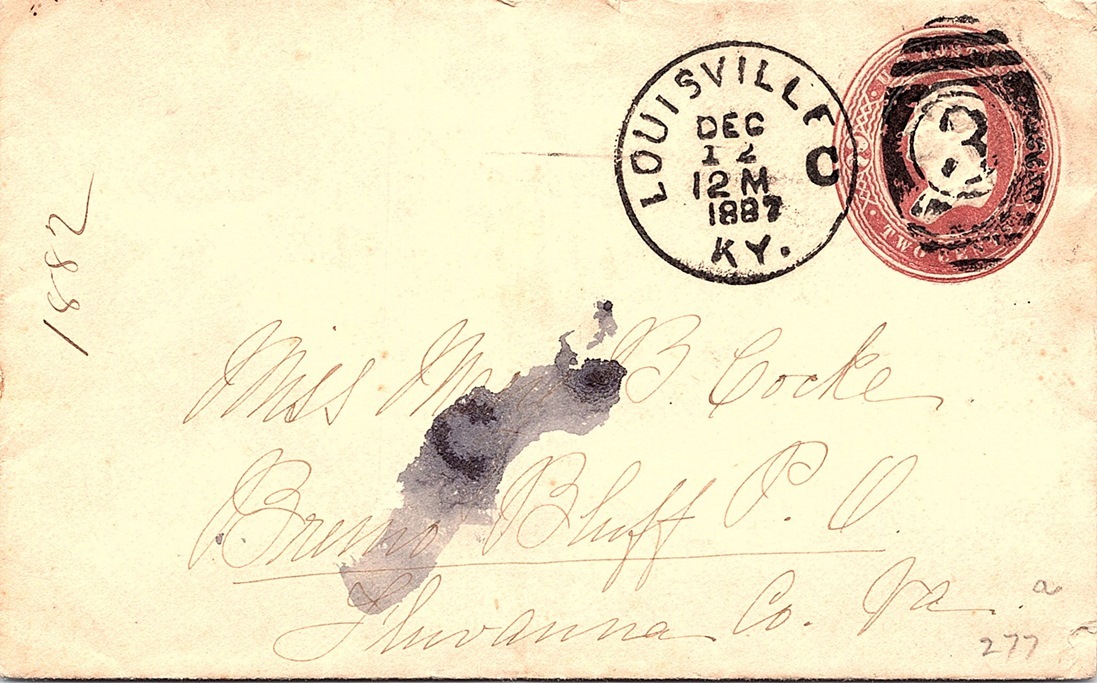 LOUISVILLE
DEC
12
12 M
1887
C
KY.
3
TWO CENTS
1882
Miss B. Cocke
Bremo Bluff P. O.
Fluvanna Co. Va.
a
277